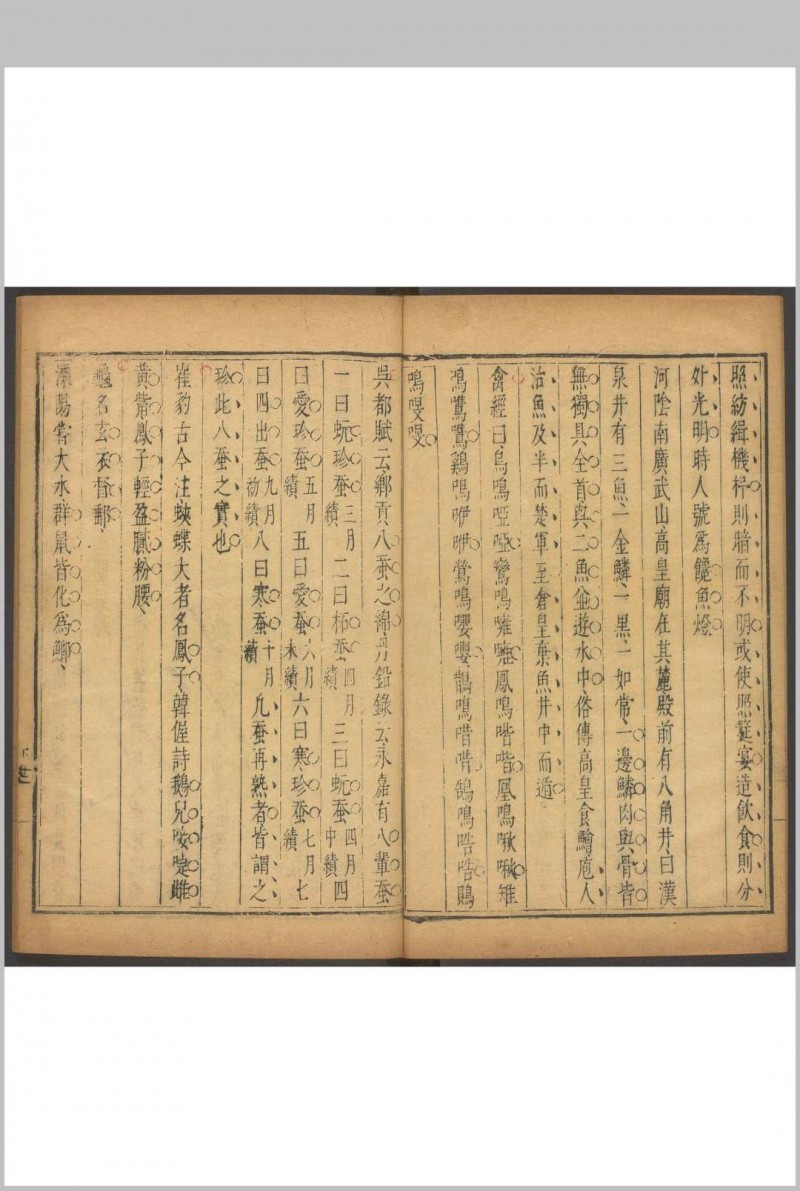 照紡緝機杼則暗而不明或使照筵宴造飲食則分
外光明時人號爲饞魚燈
河陰南廣武山高皇廟在其麓殿前有八角井曰漢
泉井有三魚一金鱗一黑一如常一邊鱗肉與骨皆
無獨具全首與二魚並遊水中俗傳高皇食鱠庖人
治魚及半而楚軍至倉皇棄魚井中而遁
禽經曰烏鳴啞啞鸞鳴噰噰鳳鳴喈喈凰鳴啾啾雉
鳴鷕鷕鷄鳴咿咿鶯鳴嚶嚶鵲鳴唶唶鵠鳴哠哠鵙
鳴嗅嗅
吳都賦云鄉貢八蚕之綿丹鉛錄云永嘉有八輩蚕
一曰蚖珍蚕三月績二曰柘蚕四月績三曰蚖蚕四月中績四
曰愛珍蚕五月績五曰愛蚕六月末績六曰寒珍蚕七月績七
曰四出蚕九月初績八曰寒蚕十月績凡蚕再熟者皆謂之
珍此八蚕之實也
崔豹古今注蛺蝶大者名鳳子韓偓詩鵝兒唼啑雌
黃觜鳳子輕盈膩粉腰
龜名玄衣督郵
溧陽嘗大水群鼠皆化爲鯽